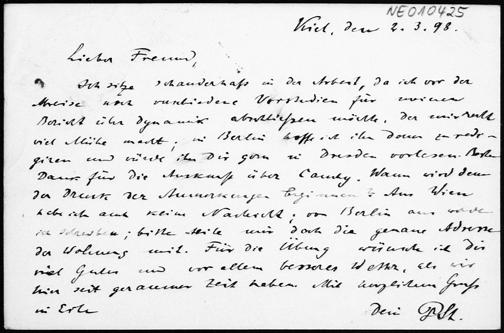 NEO10425
Kiel, den 2.3.98.
Lieber Freund,
Ich sitze schauderhaft in der Arbeit, da ich vor der
Abreise noch verschiedene Vorstudien für meinen
Bericht über Dynamik abschliessen möchte, der mir recht
viel Mühe macht; in Berlin hoffe ich ihn dann zu redi-
giren und würde ihn Dir gern in Dresden vorlesen. Besten
Dank für die Auskunft über Cauchy. Wann wird denn
der Druck der Anmerkungen beginnen? Aus Wien
habe ich auch keine Nachricht; von Berlin aus werde
ich schreiben; bitte theile mir doch die genaue Adresse
der Wohnung mit. Für die Übung wünsche ich Dir
viel Gutes und vor allem besseres Wetter, als wir
hier seit geraumer Zeit haben. Mit herzlichem Gruss
in Eile
Dein P. St.